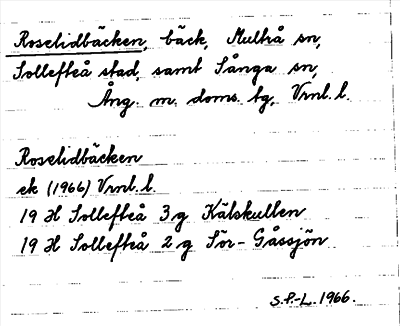 Roselidbäcken, bäck, Multrå sn,
Sollefteå stad, samt Sånga sn,
Ång. m. doms. tg, Vrnl. l.
Roselidbäcken
ek (1966) Vrnl. l.
19 H Sollefteå 3 g Kälskullen
19 H Sollefteå 2 g Sör-Gåssjön
S.P.-L. 1966.